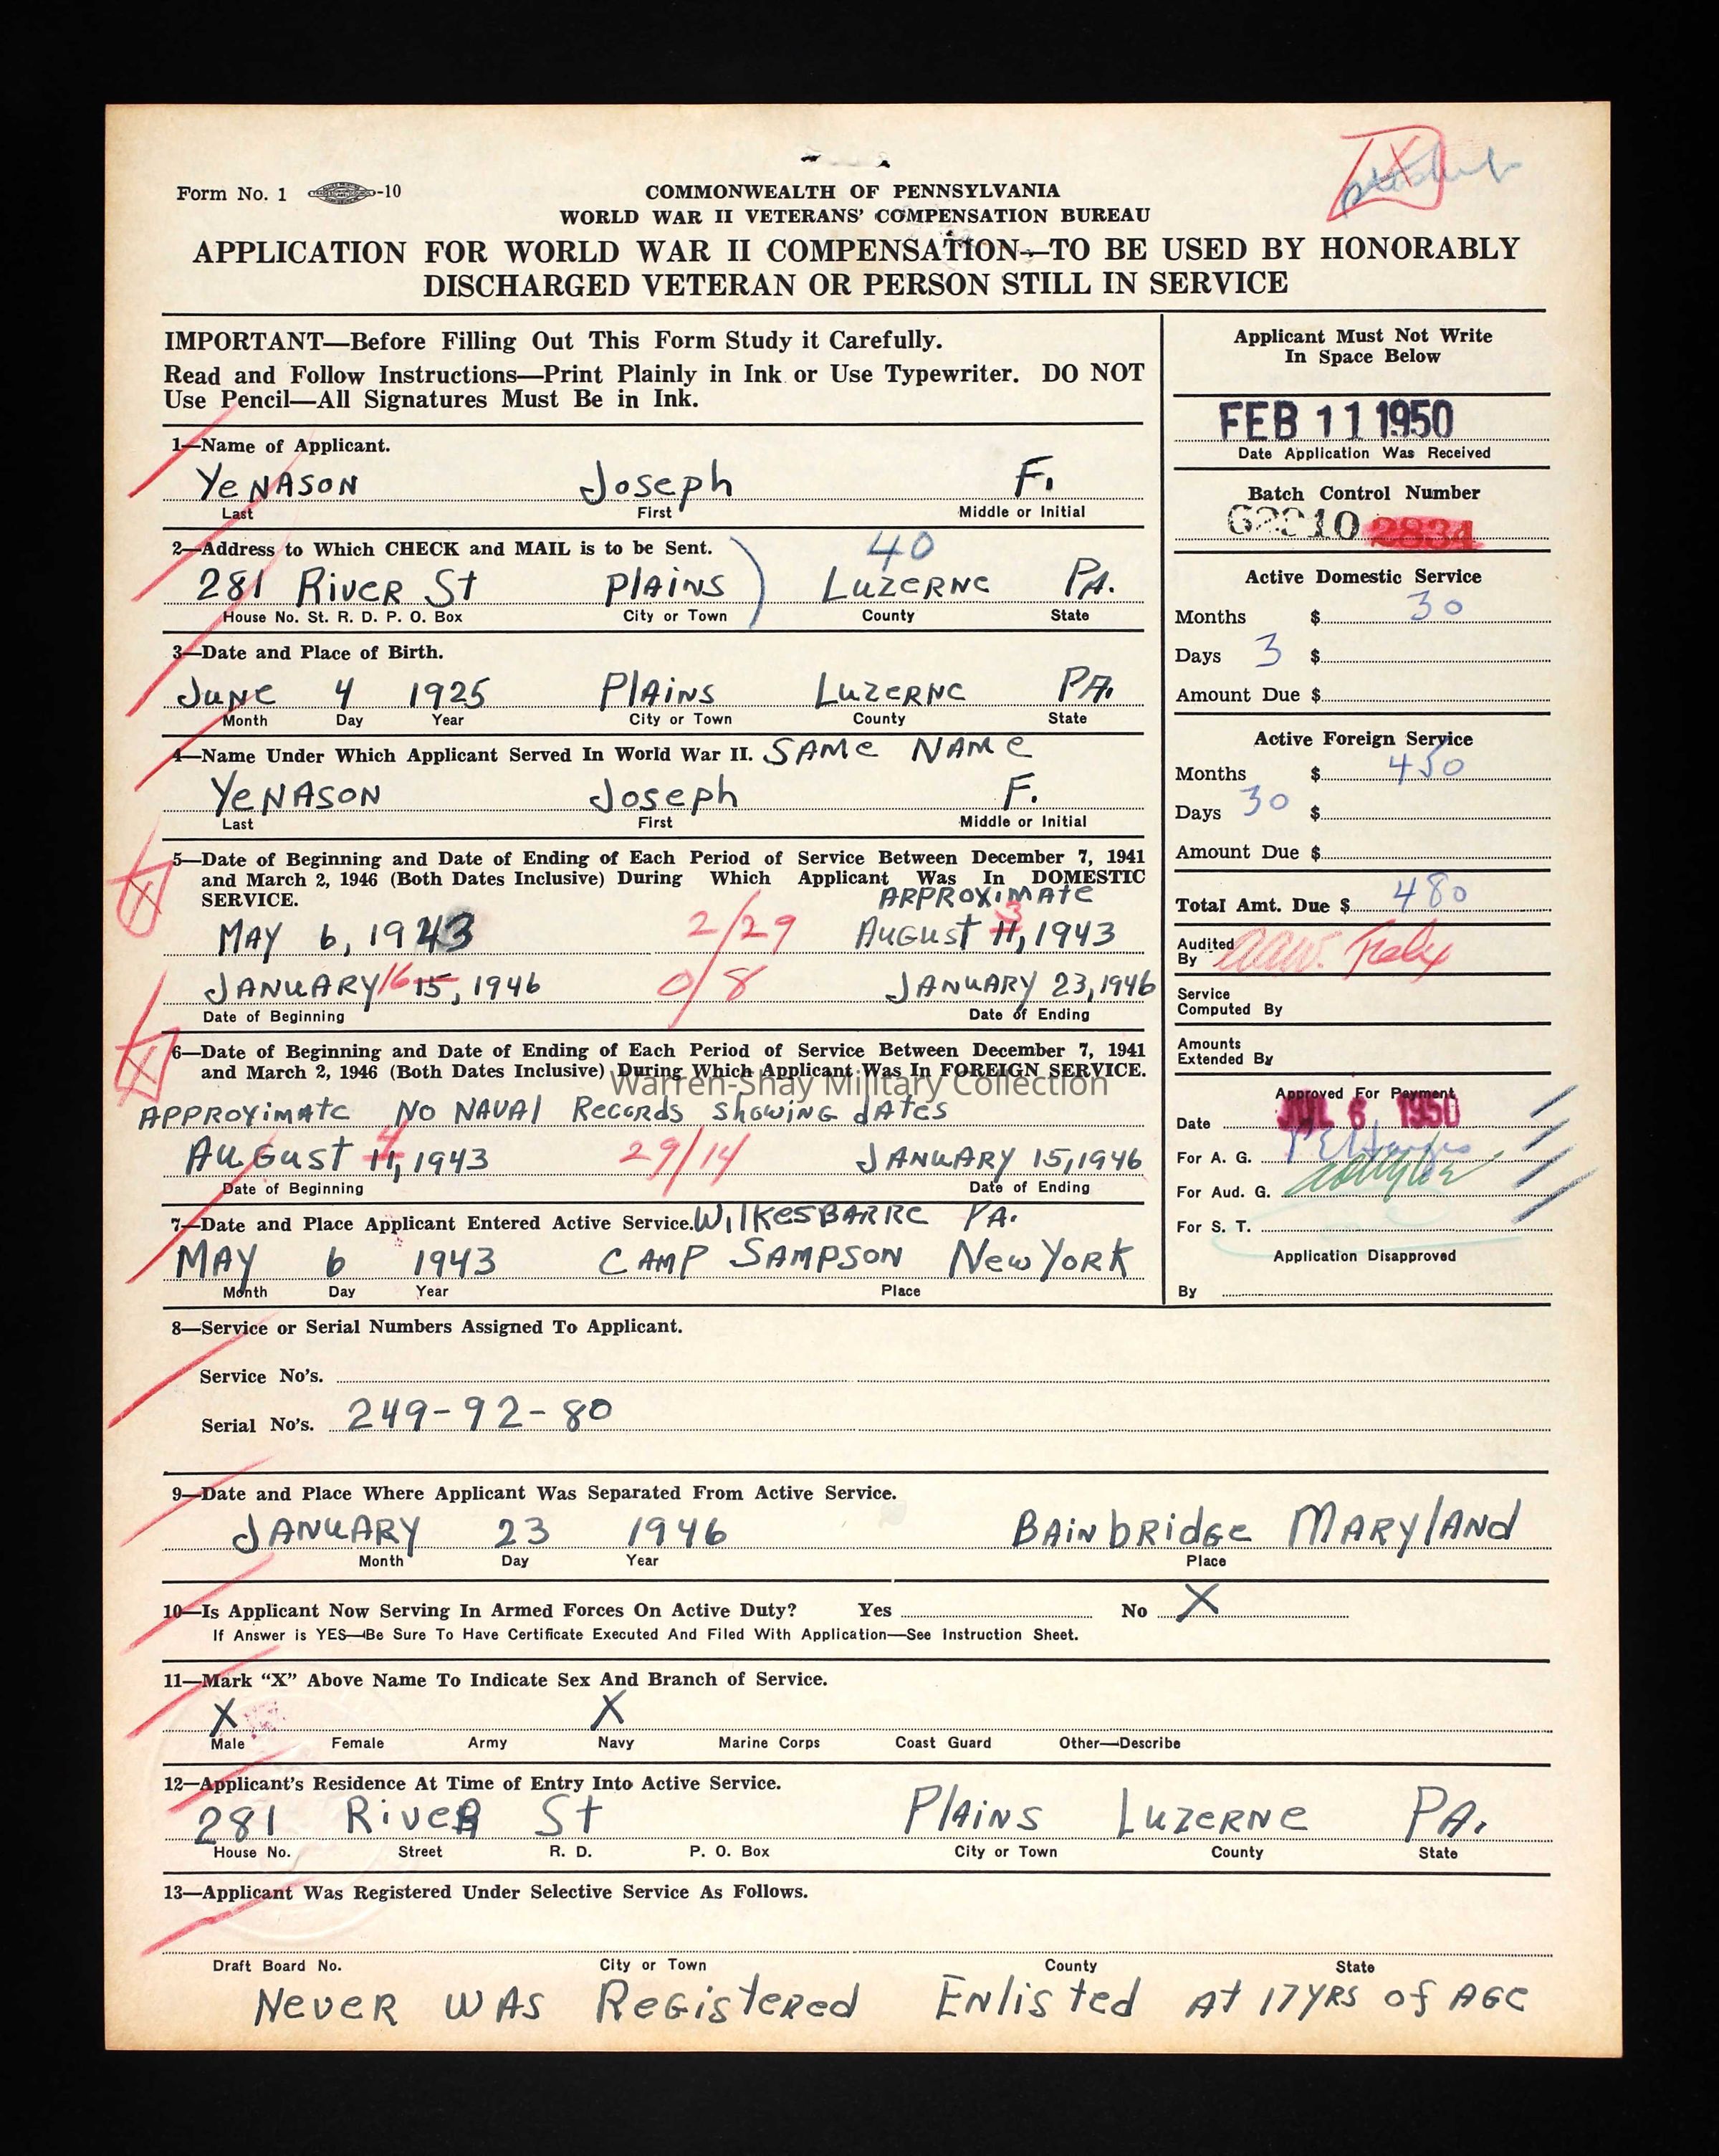 Form No. 1 -10
COMMONWEALTH OF PENNSYLVANIA
WORLD WAR II VETERANS' COMPENSATION BUREAU
APPLICATION FOR WORLD WAR II COMPENSATION—TO BE USED BY HONORABLY
DISCHARGED VETERAN OR PERSON STILL IN SERVICE
IMPORTANT—Before Filling Out This Form Study it Carefully.
Read and Follow Instructions—Print Plainly in Ink or Use Typewriter. DO NOT
Use Pencil—All Signatures Must Be in Ink.
1—Name of Applicant.
YeNASON Joseph F.
Last First Middle or Initial
2—Address to Which CHECK and MAIL is to be Sent. 40
281 RiveR St PlAiNS LuzeRNe PA.
House No. St. R. D. P. O. Box City or Town County State
3—Date and Place of Birth.
JuNe 4 1925 PlAiNS LuzeRNe PA.
Month Day Year City or Town County State
4—Name Under Which Applicant Served In World War II. SAMe NAMe
YeNASON Joseph F.
Last First Middle or Initial
5—Date of Beginning and Date of Ending of Each Period of Service Between December 7, 1941
and March 2, 1946 (Both Dates Inclusive) During Which Applicant Was In DOMESTIC
SERVICE. APPROXiMAte
MAY 6, 1943 2/29 AuGust 11, 3 1943
JANuARY 16 15, 1946 0/8 JANuARY 23, 1946
Date of Beginning Date of Ending
6—Date of Beginning and Date of Ending of Each Period of Service Between December 7, 1941
and March 2, 1946 (Both Dates Inclusive) During Which Applicant Was In FOREIGN SERVICE.
Warren-Shay Military Collection
APPROXimAte No NAVAl RecoRds showiNG dAtes
AuGust 11, 4 1943 29/14 JANuARY 15, 1946
Date of Beginning Date of Ending
7—Date and Place Applicant Entered Active Service. WilKesBARRe PA.
MAY 6 1943 CAMP SAMPSON New YoRK
Month Day Year Place
Applicant Must Not Write
In Space Below
FEB 11 1950
Date Application Was Received
Batch Control Number
Active Domestic Service
Months $ 30
Days 3 $
Amount Due $
Active Foreign Service
Months $ 450
Days 30 $
Amount Due $
Total Amt. Due $ 480
Audited
By
Service
Computed By
Amounts
Extended By
Approved For Payment
Date JUL 6 1950
For A. G.
For Aud. G.
For S. T.
Application Disapproved
By
8—Service or Serial Numbers Assigned To Applicant.
Service No's.
Serial No's. 249-92-80
9—Date and Place Where Applicant Was Separated From Active Service.
JANuARY 23 1946 BAiNbRidGe MARYlANd
Month Day Year Place
10—Is Applicant Now Serving In Armed Forces On Active Duty? Yes No X
If Answer is YES—Be Sure To Have Certificate Executed And Filed With Application—See Instruction Sheet.
11—Mark "X" Above Name To Indicate Sex And Branch of Service.
X X
Male Female Army Navy Marine Corps Coast Guard Other—Describe
12—Applicant's Residence At Time of Entry Into Active Service.
281 RiveR St PlAiNS LuzeRNe PA.
House No. Street R. D. P. O. Box City or Town County State
13—Applicant Was Registered Under Selective Service As Follows.
Draft Board No. City or Town County State
NeveR WAS ReGisteRed ENlisted At 17 YRS of AGe